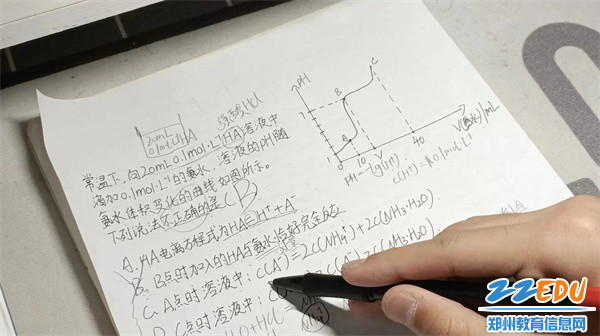 强酸HCl
20mL
0.1mol·L⁻¹HA
常温下,向20mL0.1mol·L⁻¹HA溶液中
滴加0.1mol·L⁻¹的氨水,溶液的pH随
氨水体积变化的曲线如图所示。
下列说法不正确的是(B)
A. HA电离方程式为HA=H⁺+A⁻
B. B点时加入的HA与氨水恰好完全反应
C. A点时溶液中:c(A⁻)=2c(NH₄⁺)+2c(NH₃·H₂O)
D. C点时溶液中:
c(NH₃·H₂O)
pH
7
1
0
10
V
40
V(氨水)/mL
A
B
C
pH=-lg(H⁺)
c(H⁺)=0.1mol·L⁻¹
22EDU
郑州教育信息网